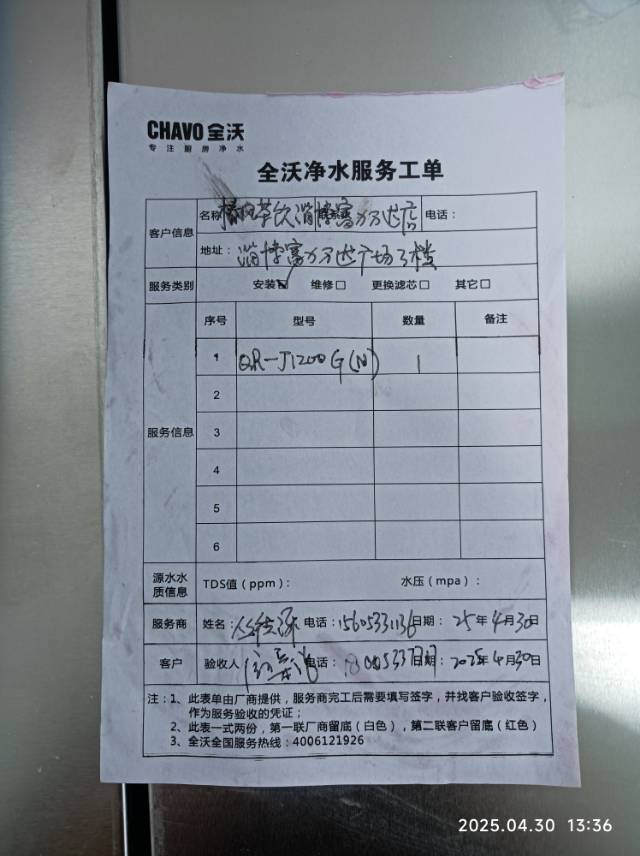 CHAVO 全沃
专注厨房净水
全沃净水服务工单
客户信息
名称 茶饮淄博富力万达店 电话：
地址： 淄博富力万达广场3楼
服务类别 安装☑ 维修□ 更换滤芯□ 其它□
服务信息
序号 型号 数量 备注
1 QR-J1200G(N) 1
2
3
4
5
6
源水水质信息 TDS值（ppm）： 水压（mpa）：
服务商 姓名： 电话：15605331136 日期：25年4月30日
客户 验收人 电话： 日期：2025年4月30日
注：1、此表单由厂商提供，服务商完工后需要填写签字，并找客户验收签字，
作为服务验收的凭证；
2、此表一式两份，第一联厂商留底（白色），第二联客户留底（红色）
3、全沃全国服务热线：4006121926
2025.04.30 13:36